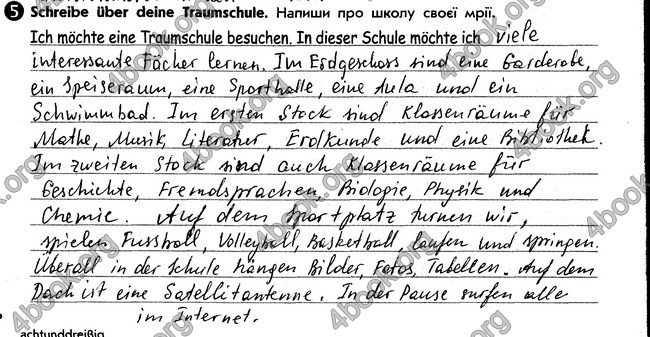 5 Schreibe über deine Traumschule. Напиши про школу своєї мрії.
Ich möchte eine Traumschule besuchen. In dieser Schule möchte ich viele
interessante Fächer lernen. Im Erdgeschoss sind eine Garderobe,
ein Speiseraum, eine Sporthalle, eine Aula und ein
Schwimmbad. Im ersten Stock sind Klassenräume für
Mathe, Musik, Literatur, Erdkunde und eine Bibliothek.
Im zweiten Stock sind auch Klassenräume für
Geschichte, Fremdsprachen, Biologie, Physik und
Chemie. Auf dem Sportplatz turnen wir,
spielen Fussball, Volleyball, Basketball, laufen und springen.
Überall in der Schule hängen Bilder, Fotos, Tabellen. Auf dem
Dach ist eine Satellitantenne. In der Pause surfen alle
im Internet.
achtunddreißig
4book.org